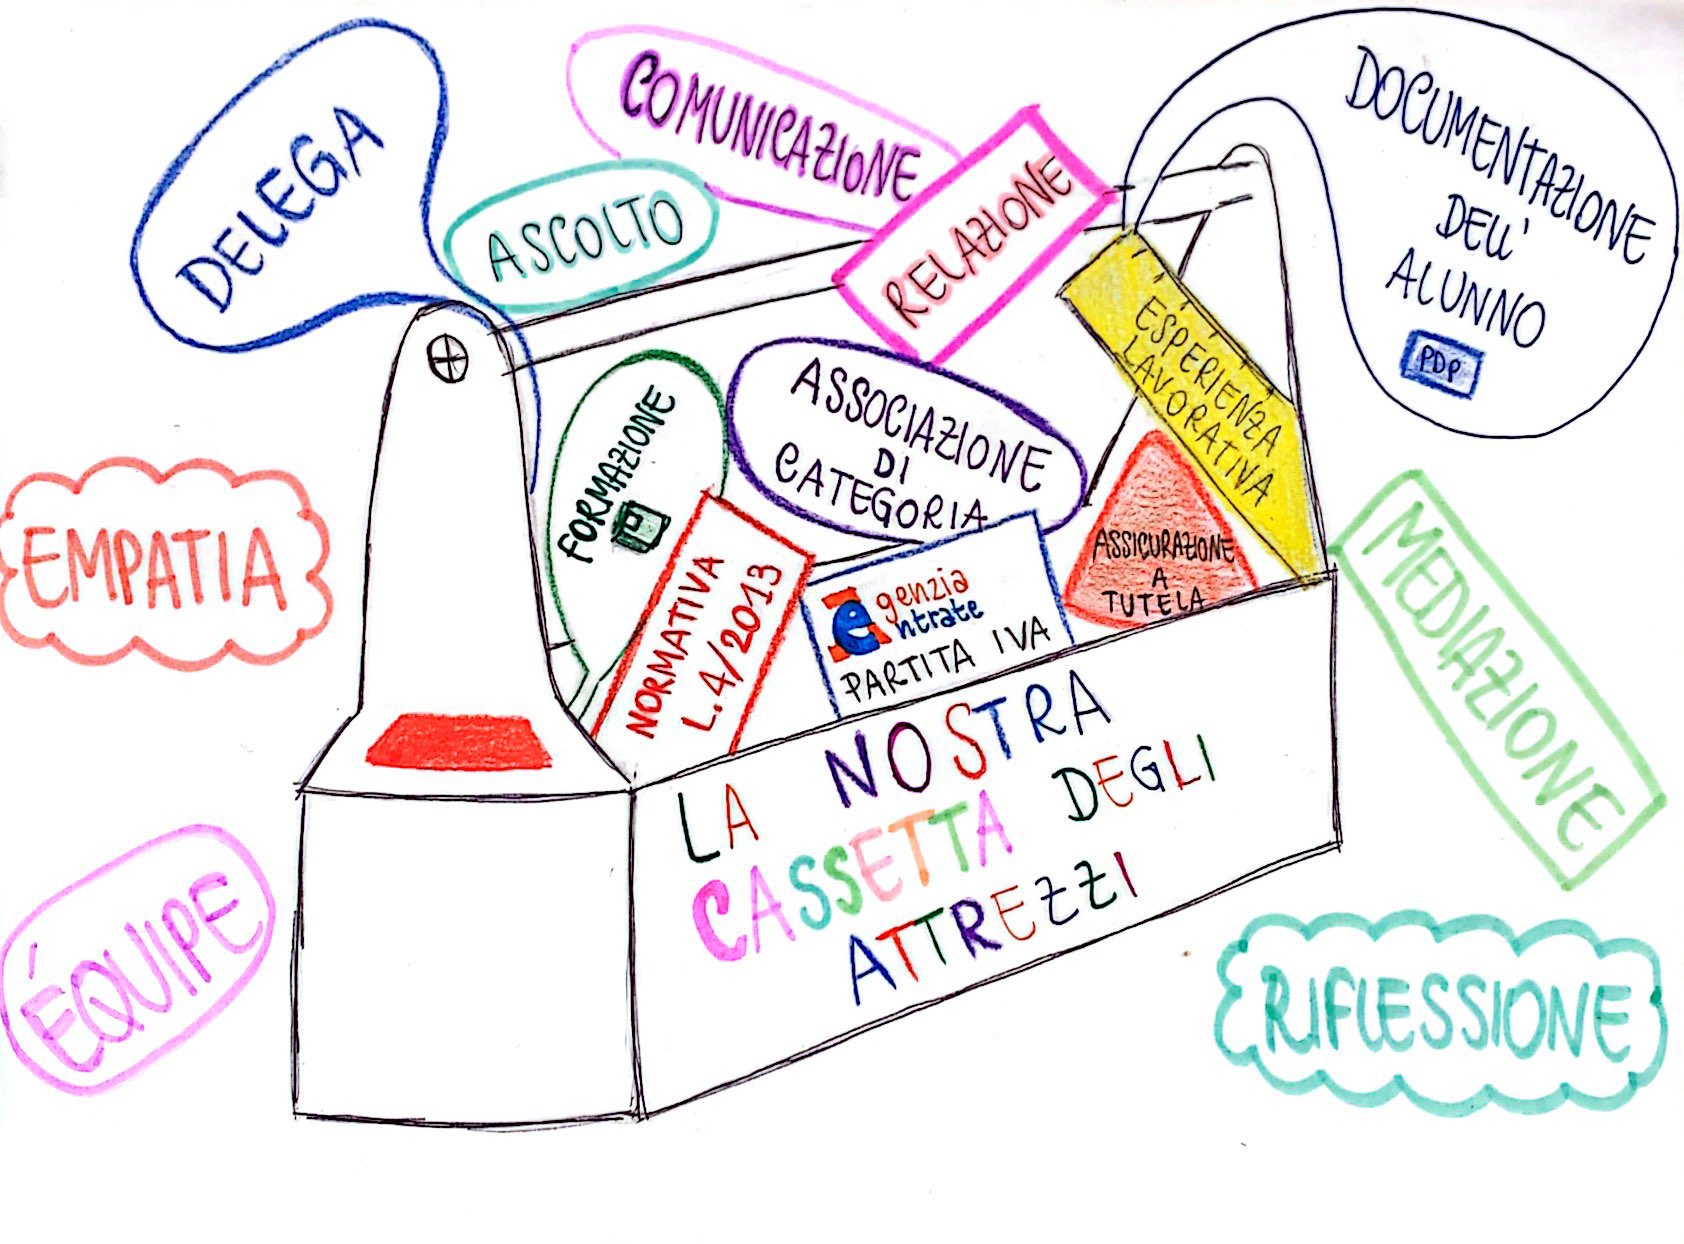 DELEGA
COMUNICAZIONE
ASCOLTO
RELAZIONE
DOCUMENTAZIONE
DELL'
ALUNNO
PDP
ESPERIENZA
LAVORATIVA
ASSOCIAZIONE
DI
CATEGORIA
FORMAZIONE
EMPATIA
NORMATIVA
L. 4/2013
Agenzia
entrate
PARTITA IVA
ASSICURAZIONE
A
TUTELA
MEDIAZIONE
LA NOSTRA
CASSETTA DEGLI
ATTREZZI
ÉQUIPE
RIFLESSIONE